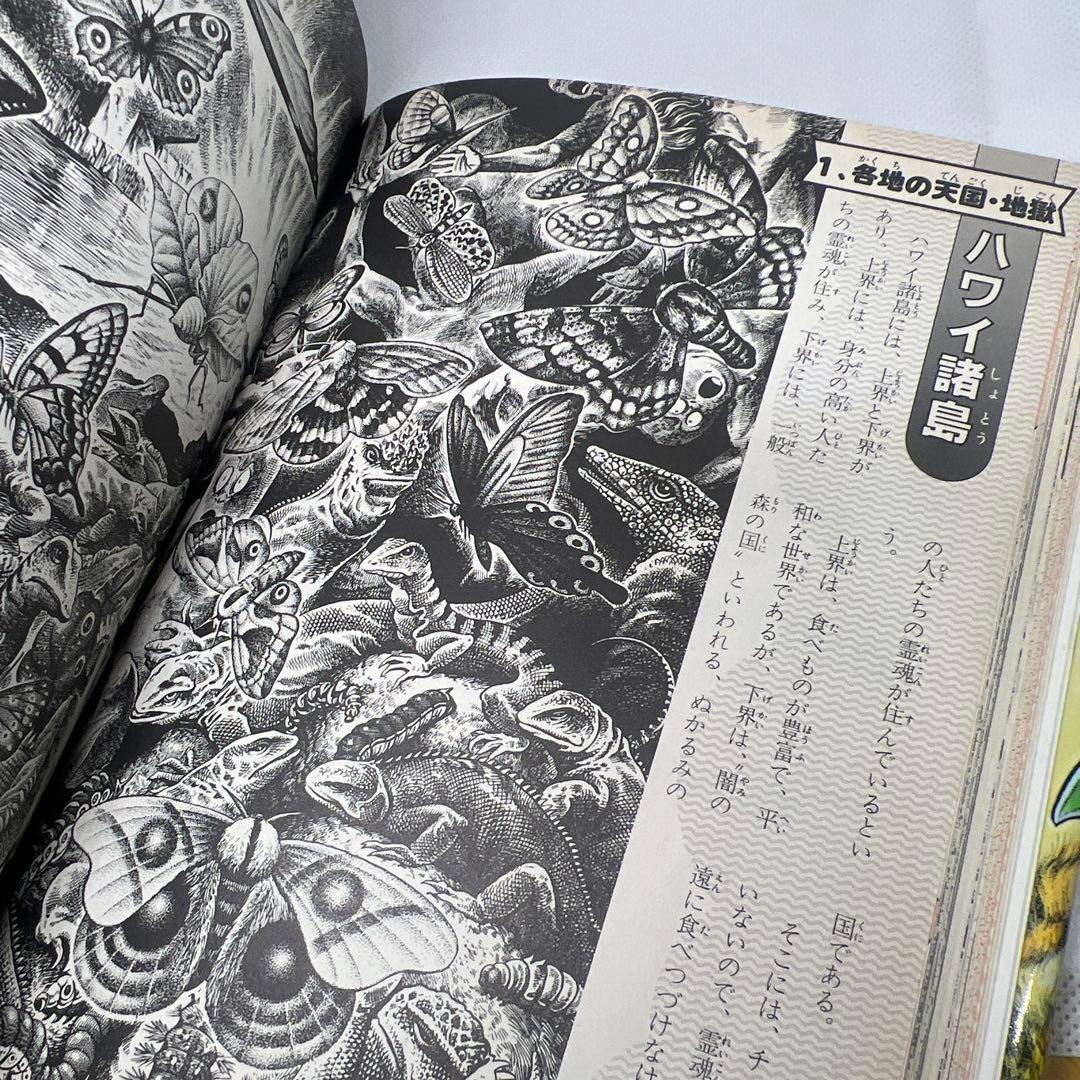 1、各地の天国・地獄
ハワイ諸島
ハワイ諸島には、上界と下界が
あり、上界には、身分の高い人た
ちの霊魂が住み、下界には、一般
の人たちの霊魂が住んでいるとい
う。
上界は、食べものが豊富で、平
和な世界であるが、下界は、〝闇の
森の国〟といわれる、ぬかるみの
国である。
そこには、チ
いないので、霊魂
遠に食べつづけなけ